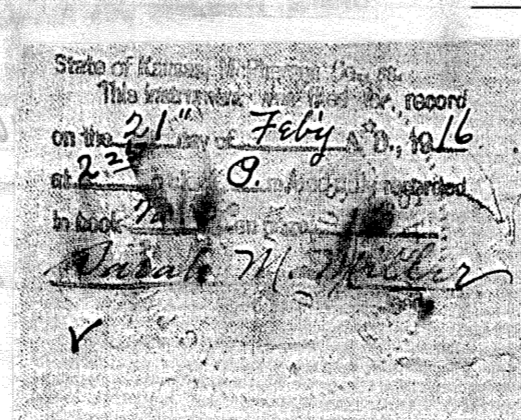 State of Kansas, McPherson Co., ss.
This instrument was filed for record
on the 21" day of Feb'y A.D., 1916
at 2.25 o'clock P. m. and duly recorded
in book on page
Sarah M. Miller